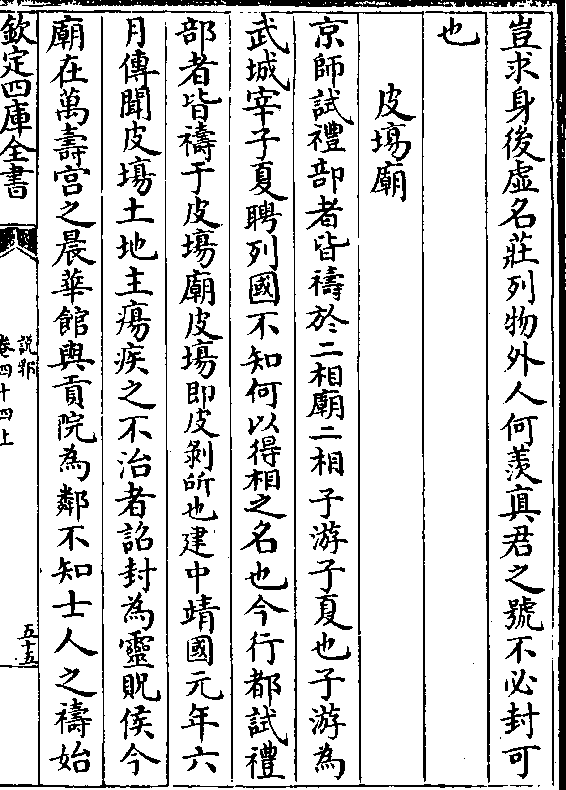 豈求身後虛名莊列物外人何羨真君之號不必封可
也
皮塲廟
京師試禮部者皆禱於二相廟二相子游子夏也子游為
武城宰子夏聘列國不知何以得相之名也今行都試禮
部者皆禱于皮塲廟皮塲即皮剝所也建中靖國元年六
月傳聞皮塲土地主瘍疾之不治者詔封為靈貺侯今
廟在萬壽宮之晨華館與貢院為鄰不知士人之禱始
欽定四庫全書
説郛
卷四十四上
五十五